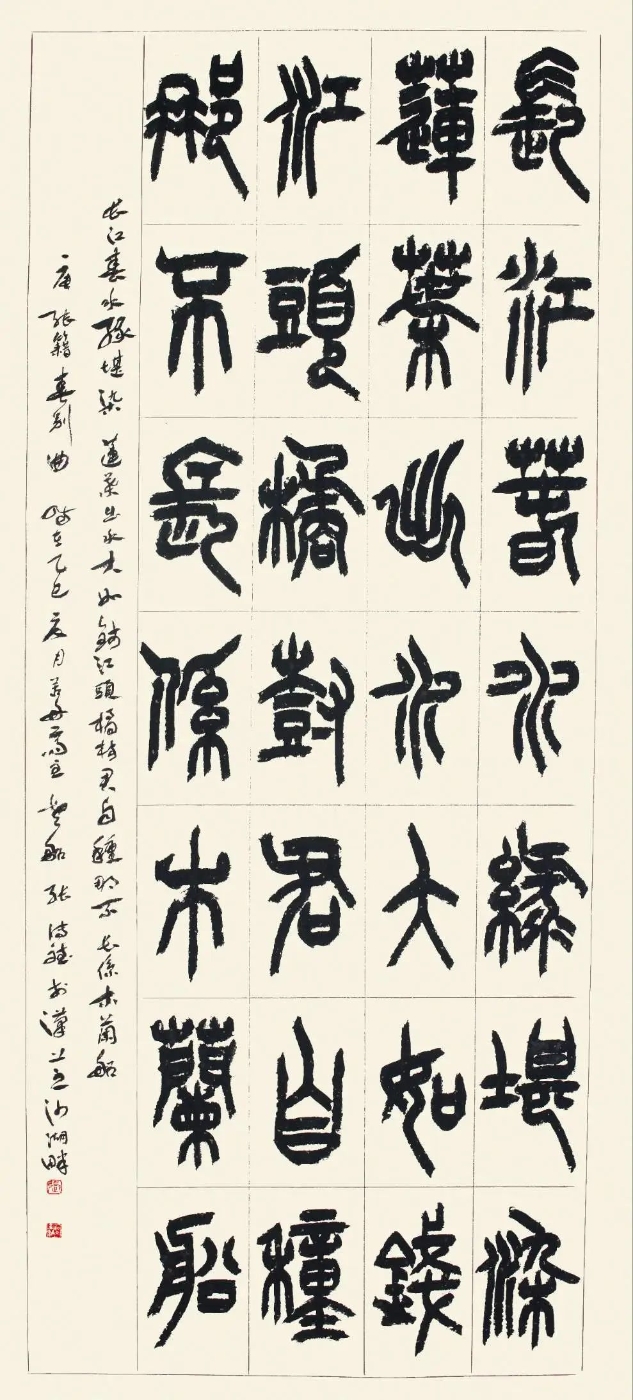 長江春水緑堪染
蓮葉出水大如錢
江頭橘樹君自種
那不長係木蘭船
長江春水緑堪染蓮葉出水大如錢江頭橘樹君自種那不長係木蘭船
唐張籍春别曲時在乙巳夏月齋主張於漢上沙湖畔